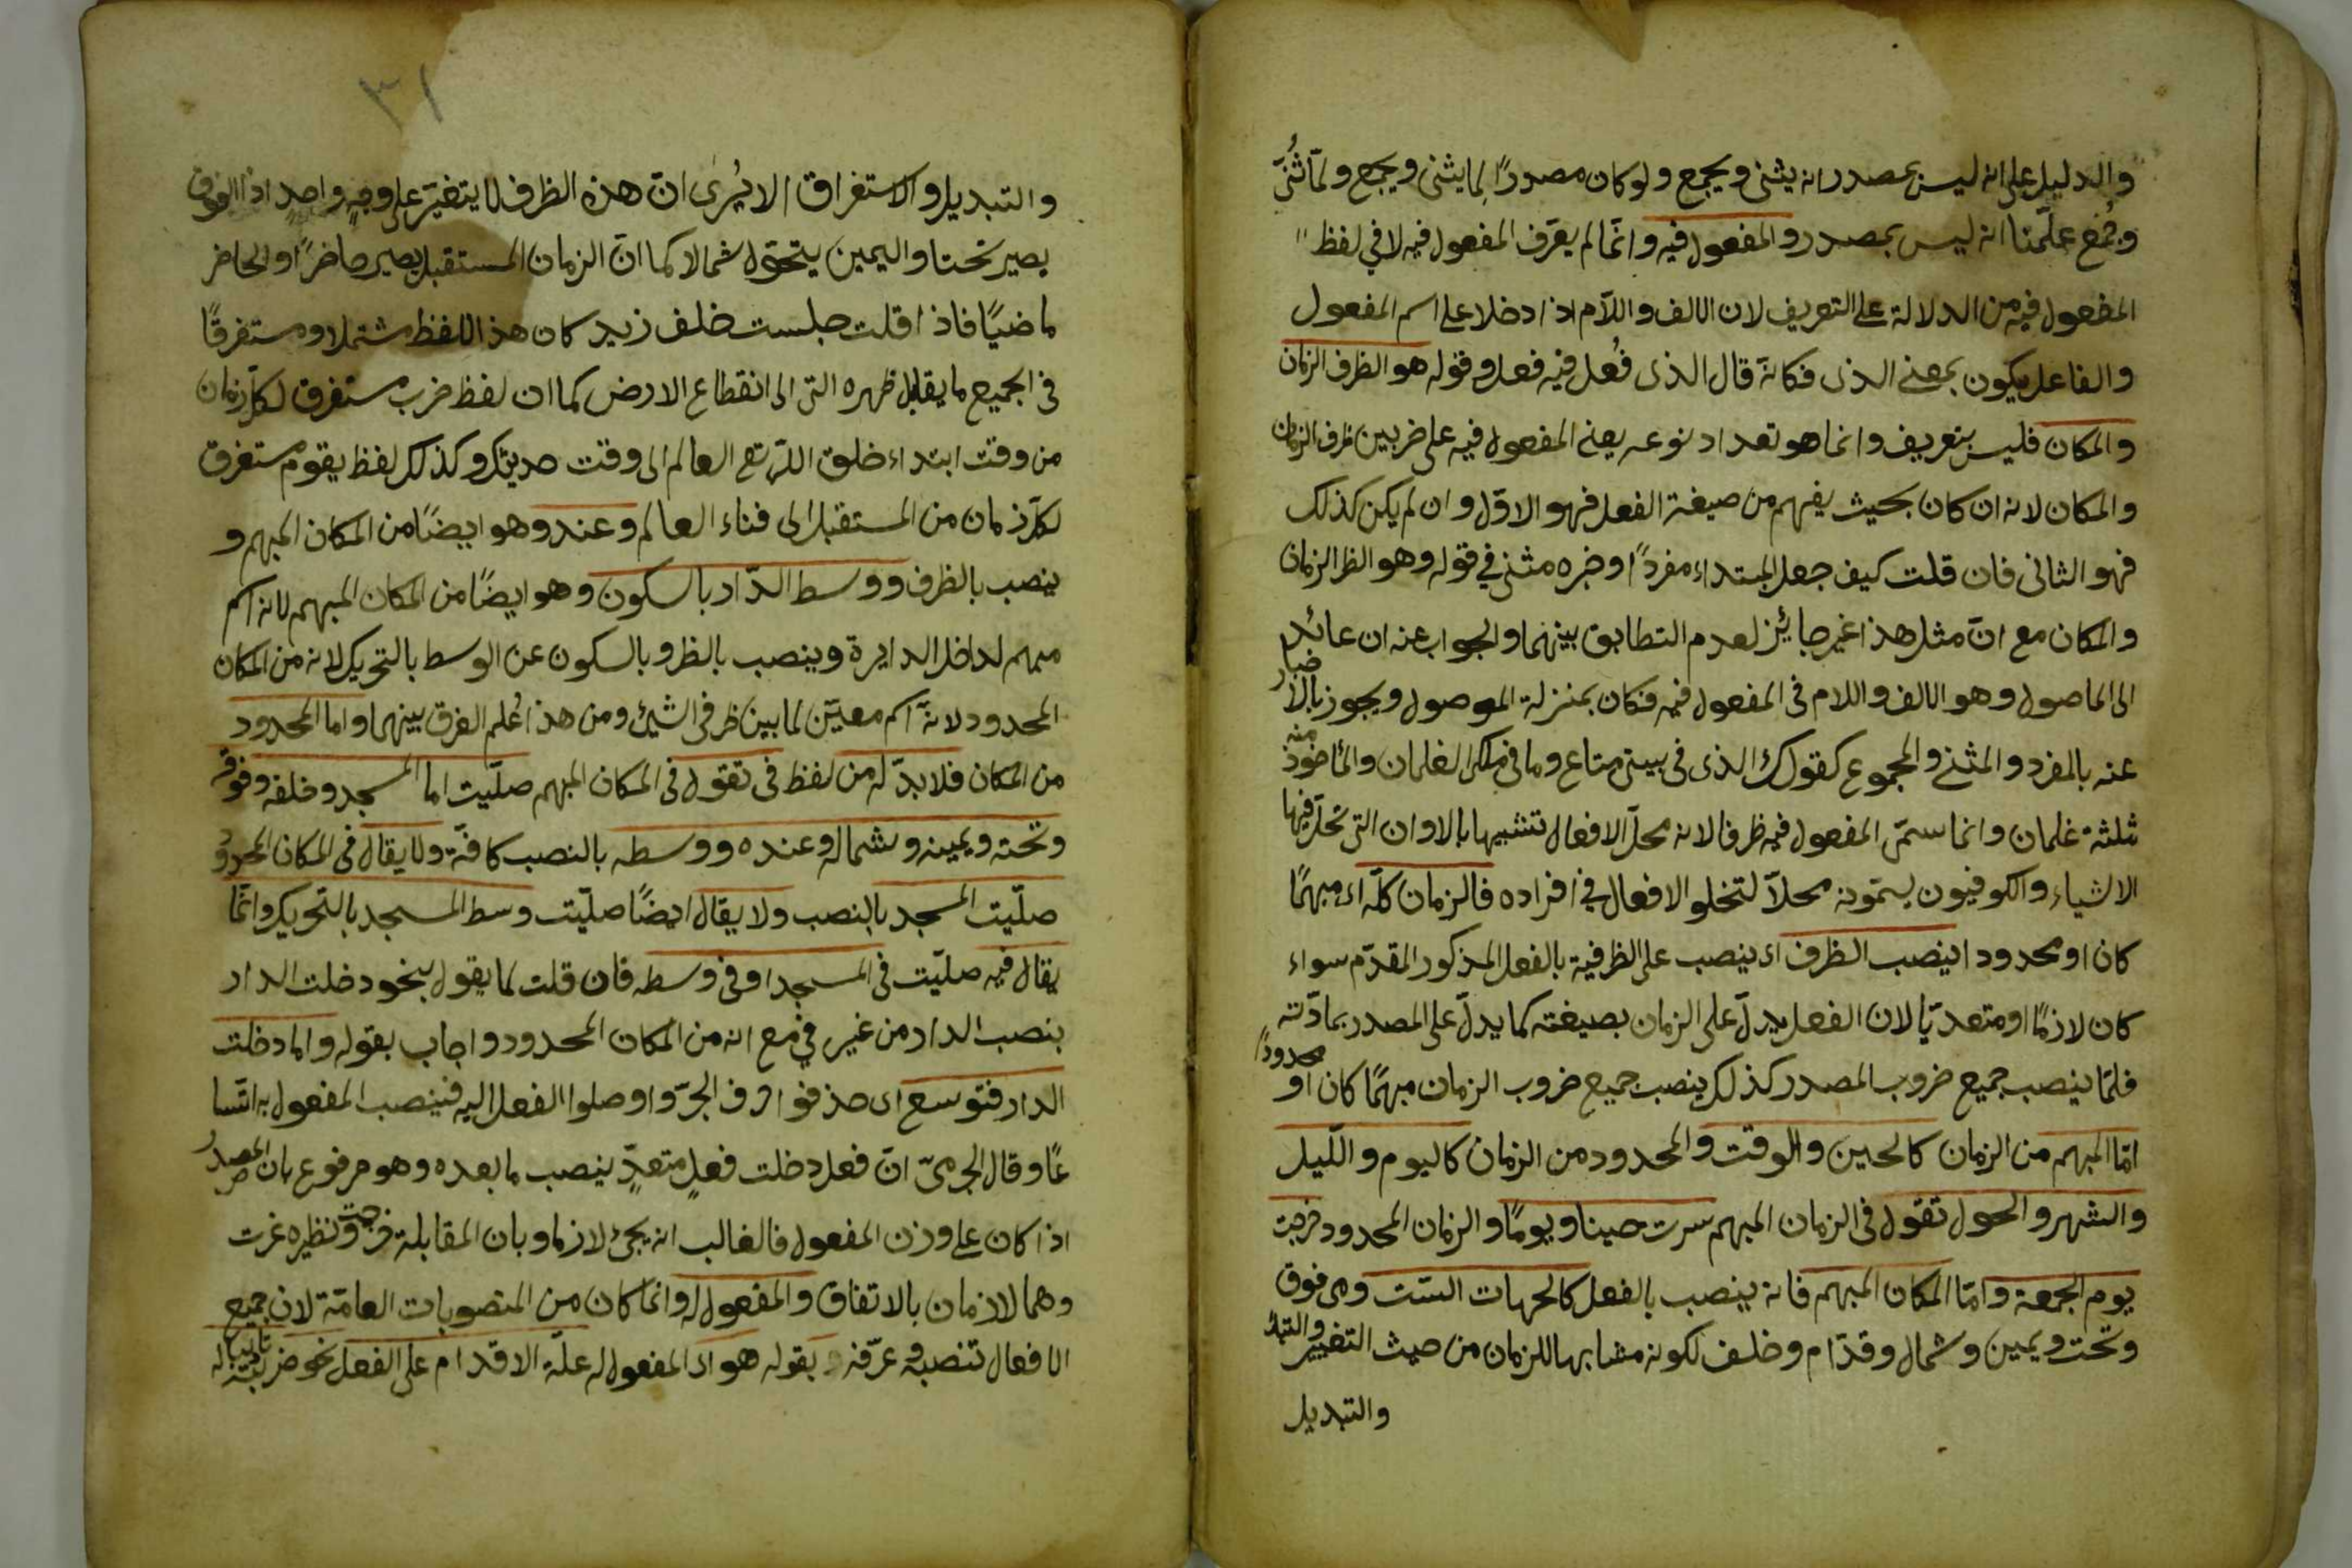 والدليل على انه ليس بمصدر انه يثنى ويجمع ولو كان مصدرًا لما يثنى ويجمع ولمّا ثُنّى
وجُمع علّمنا انه ليس بمصدر والمفعول فيه وانّما لم يعرّف المفعول فيه لا في لفظ
المفعول فيه من الدلالة على التعريف لان الالف واللّام اذا دخلا على اسم المفعول
والفاعل يكون بمعنى الذى فكانّه قال الذى فُعل فيه فعل وقوله هو الظرف الزمان
والمكان فليس بتعريف وانما هو تعداد نوعه يعنى المفعول فيه على ضربين ظرف الزمان
والمكان لانه ان كان بحيث يفهم من صيغة الفعل فهو الاوّل وان لم يكن كذلك
فهو الثانى فان قلت كيف جعل المبتداء مفردًا وخبره مثنى في قوله وهو الظر الزمان
والمكان مع انّ مثل هذا غير جائز لعدم التطابق بينهما والجواب عنه ان عائد
الى الماصول وهو الالف واللام فى المفعول فيه فكان بمنزلة الموصول ويجوز بالاخبار
عنه بالمفرد والمثنى والمجموع كقولك الذى فى بيتى متاع وما فى ملكى الغلمان والمأخوذ منه
ثلثة غلمان وانما سمّى المفعول فيه ظرفا لانه محلّ الافعال تشبيها بالاوان التى تحلّ فيها
الاشياء والكوفيون يسمّونه محلاّ لتخلو الافعال في افراده فالزمان كلّه اى مبهمًا
كان او محدودا ينصب الظرف اى ينصب على الظرفية بالفعل المذكور المقدّم سواء
كان لازمًا او متعدّيا لان الفعل يدلّ على الزمان بصيغته كما يدلّ على المصدر بمادّته
فلمّا ينصب جميع ضروب المصدر كذلك ينصب جميع ضروب الزمان مبهمًا كان او محدودًا
امّا المبهم من الزمان كالحين والوقت والمحدود من الزمان كاليوم والّليل
والشهر والحول تقول فى الزمان المبهم سرت حينا ويومًا والزمان المحدود خرجت
يوم الجمعة وامّا المكان المبهم فانه ينصب بالفعل كالجهات الستّ وهى فوق
وتحت ويمين وشمال وقدّام وخلف لكونه مشابها للزمان من حيث التغيير والتبدّ
والتبديل
٣١
والتبديل والاستغراق الا يُرى انّ هذه الظرف لا يتغيّر على وجهٍ واحدٍ اذ الفوق
يصير تحتا واليمين يتحوّل شمالا كما انّ الزمان المستقبل يصير حاضرًا والحاضر
ماضيًا فاذا قلت جلست خلف زيد كان هذا اللفظ مشتملا ومستغرقًا
فى الجميع ما يقابل ظهره التى الى انقطاع الارض كما ان لفظ ضرب مستغرق لكلّ زمان
من وقت ابتداء خلق اللّه تع العالم الى وقت حديثك وكذلك لفظ يقوم مستغرق
لكلّ زمان من المستقبل الى فناء العالم وعند وهو ايضًا من المكان المبهم و
ينصب بالظرف ووسط الدّار بالسكون وهو ايضًا من المكان المبهم لانه اسم
مبهم لداخل الدايرة وينصب بالظرو بالسكون عن الوسط بالتحريك لانه من المكان
المحدود لانّه اسم معيّن لما بين طرفى الشيئ ومن هذا عُلم الفرق بينهما واما المحدود
من المكان فلا بدّ له من لفظ فى تقول فى المكان المبهم صلّيت امام المسجد وخلفه وفوقه
وتحته ويمينه وشماله وعنده ووسطه بالنصب كافّة ولا يقال فى المكان المحدود
صلّيت المسجد بالنصب ولا يقال ايضًا صلّيت وسط المسجد بالتحريك وانّما
يقال فيه صلّيت فى المسجد او فى وسطه فان قلت لما يقول بنحو دخلت الدار
بنصب الدار من غير في مع انه من المكان المحدود واجاب بقوله واما دخلت
الدار فتوسع اى حذفوا حرف الجرّ واوصلوا الفعل اليه فينصب المفعول به اتّسا
عًا وقال الجرمىّ انّ فعل دخلت فعلٍ متعدٍّ ينصب ما بعده وهو مرفوع بان المصدر
اذا كان على وزن المفعول فالغالب انه يجئ لازما وبان المقابلة خرجت ونظيره غرت
وهما لازمان بالاتفاق والمفعول له وانما كان من المنصوبات العامّة لان جميع
الافعال تنصبه وعرّفه بقوله هو اى المفعول له علّة الاقدام على الفعل نحو ضربته تاديبا له